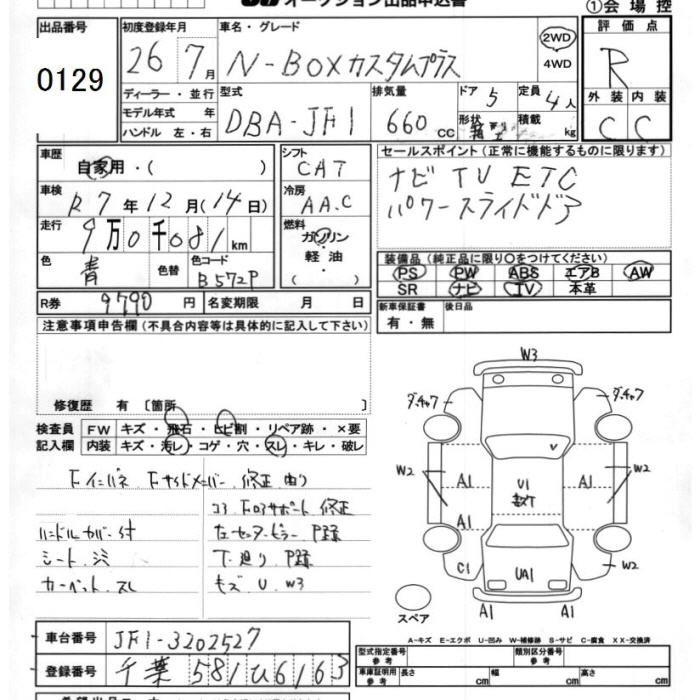 オークション出品申込書
①会場控
出品番号
0129
初度登録年月
26 7月
車名・グレード
N-BOXカスタムプラス
2WD
4WD
評価点
R
外装 内装
C C
ディーラー・並行
モデル年式 年
ハンドル 左・右
型式
DBA-JF1
排気量
660 cc
ドア 5
定員 4人
形状
積載 kg
車歴
自家用・( )
シフト
CAT
セールスポイント(正常に機能するものに限ります)
ナビ TV ETC
パワースライドドア
車検
R7年12月(14日)
冷房
AAC
走行
9万0千081km
燃料
ガソリン
・軽油・
色
青
色替
色コード
B572P
装備品(純正品に限り○をつけてください)
PS PW ABS エアB AW
SR ナビ TV 本革
R券 9790円
名変期限 月 日
新車保証書
有・無
後日品
注意事項申告欄(不具合内容等は具体的に記入して下さい)
修復歴 有 〔箇所 〕
検査員
記入欄
FW キズ・飛石・ヒビ割・リペア跡・×要
内装 キズ・汚レ・コゲ・穴・スレ・キレ・破レ
Fインパネ Fサイドメンバー 修正 曲り
コアFロアサポート 修正
ハンドルカバー付
左センターピラー 凹録
シート シミ
下廻り 凹録
カーペット スレ
キズ U W3
W3
ダッチャク
ダッチャク
W2
A1
U1
A1
W2
A1
C1
UA1
W2
A1
A1
スペア
A-キズ E-エクボ U-凹み W-補修跡 S-サビ C-腐食 XX-交換済
車台番号
JF1-3202527
登録番号
千葉 581 ひ 6163
型式指定番号
参考
類別区分番号
参考
車庫証明用
参考
長さ cm
幅 cm
高さ cm